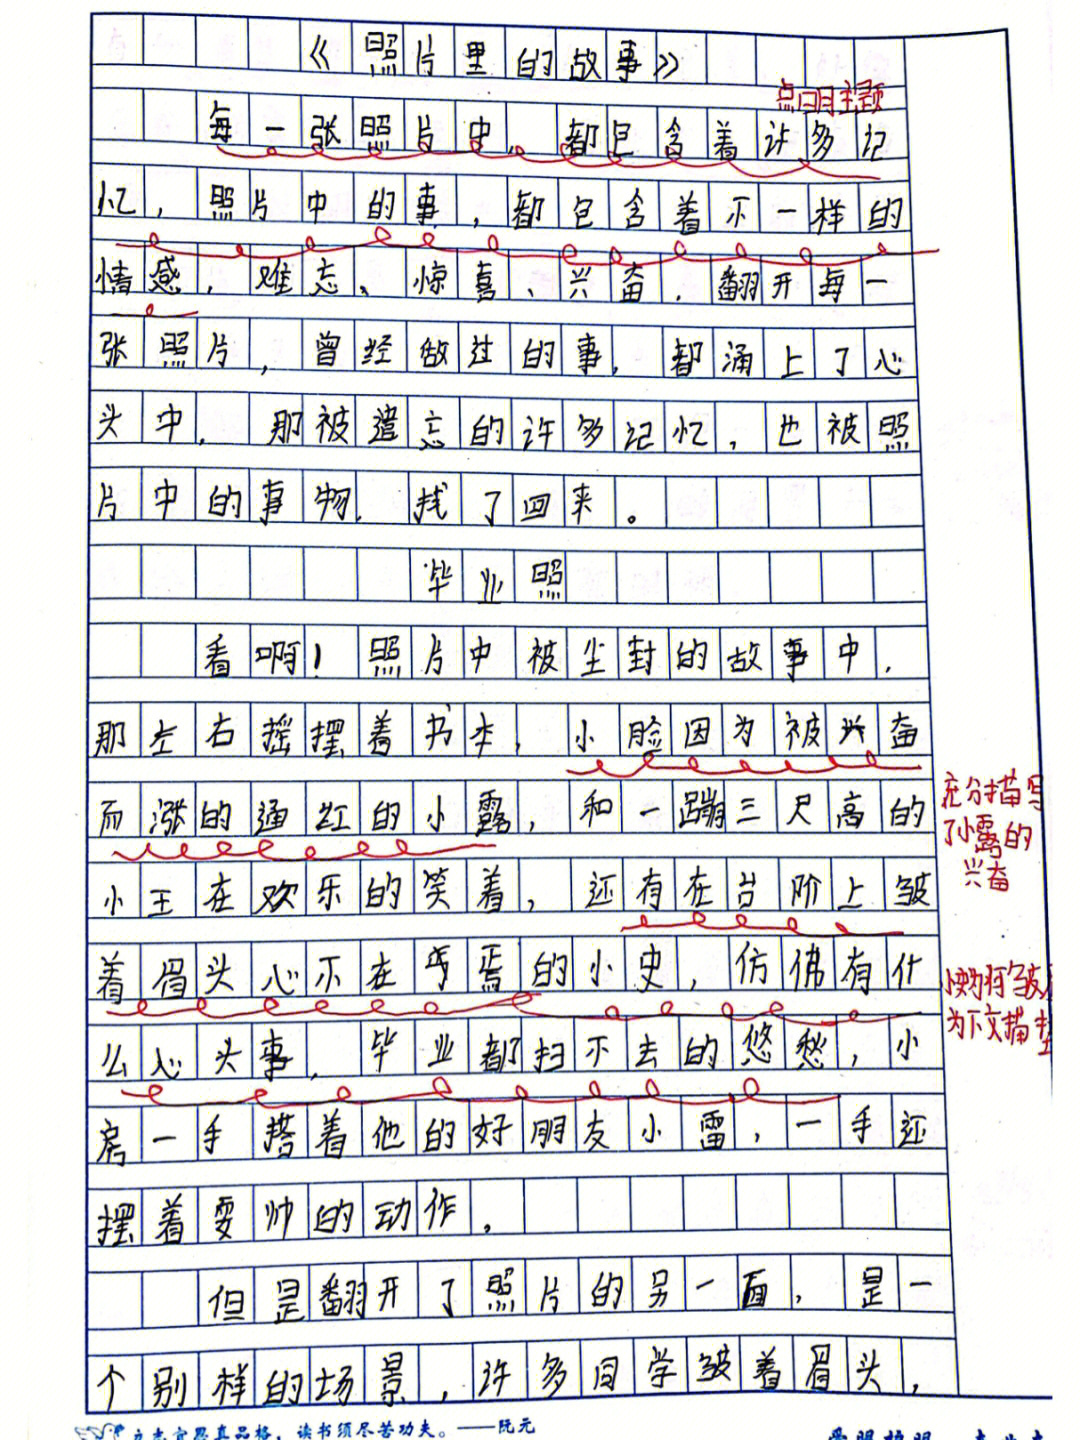 《照片里的故事》
点明主题
每一张照片中，都包含着许多记
忆，照片中的事，都包含着不一样的
情感，难忘、惊喜、兴奋，翻开每一
张照片，曾经做过的事，都涌上了心
头中，那被遗忘的许多记忆，也被照
片中的事物，找了回来。
毕业照
看啊！照片中被尘封的故事中，
那左右摇摆着书本，小脸因为被兴奋
而涨的通红的小露，和一蹦三尺高的
充分描写
了小露的
兴奋
小王在欢乐的笑着，还有在台阶上皱
着眉头心不在焉的小史，仿佛有什
么心头事，毕业都扫不去的悠愁，小
为下文描
房一手搭着他的好朋友小雷，一手还
摆着耍帅的动作。
但是翻开了照片的另一面，是一
个别样的场景，许多同学皱着眉头，
读书须尽苦功夫。——阮元